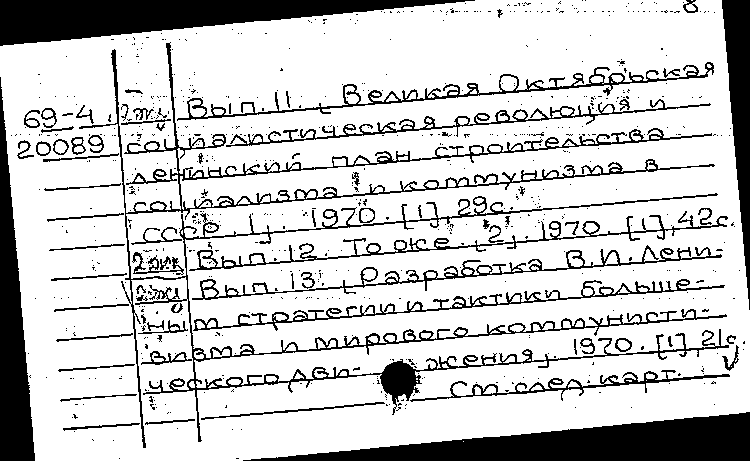 8
69-4. 2эк Вып. 11. [Великая Октябрьская
20089 социалистическая революция и
ленинский план строительства
социализма и коммунизма в
СССР. 1]. 1970. [1], 29с.
2эк Вып. 12. То же. [2]. 1970. [1], 42с.
2эк Вып. 13. [Разработка В.И. Лени-
ным стратегии и тактики больше-
визма и мирового коммунисти-
ческого дви- жения]. 1970. [1], 21с.
См. след. карт.